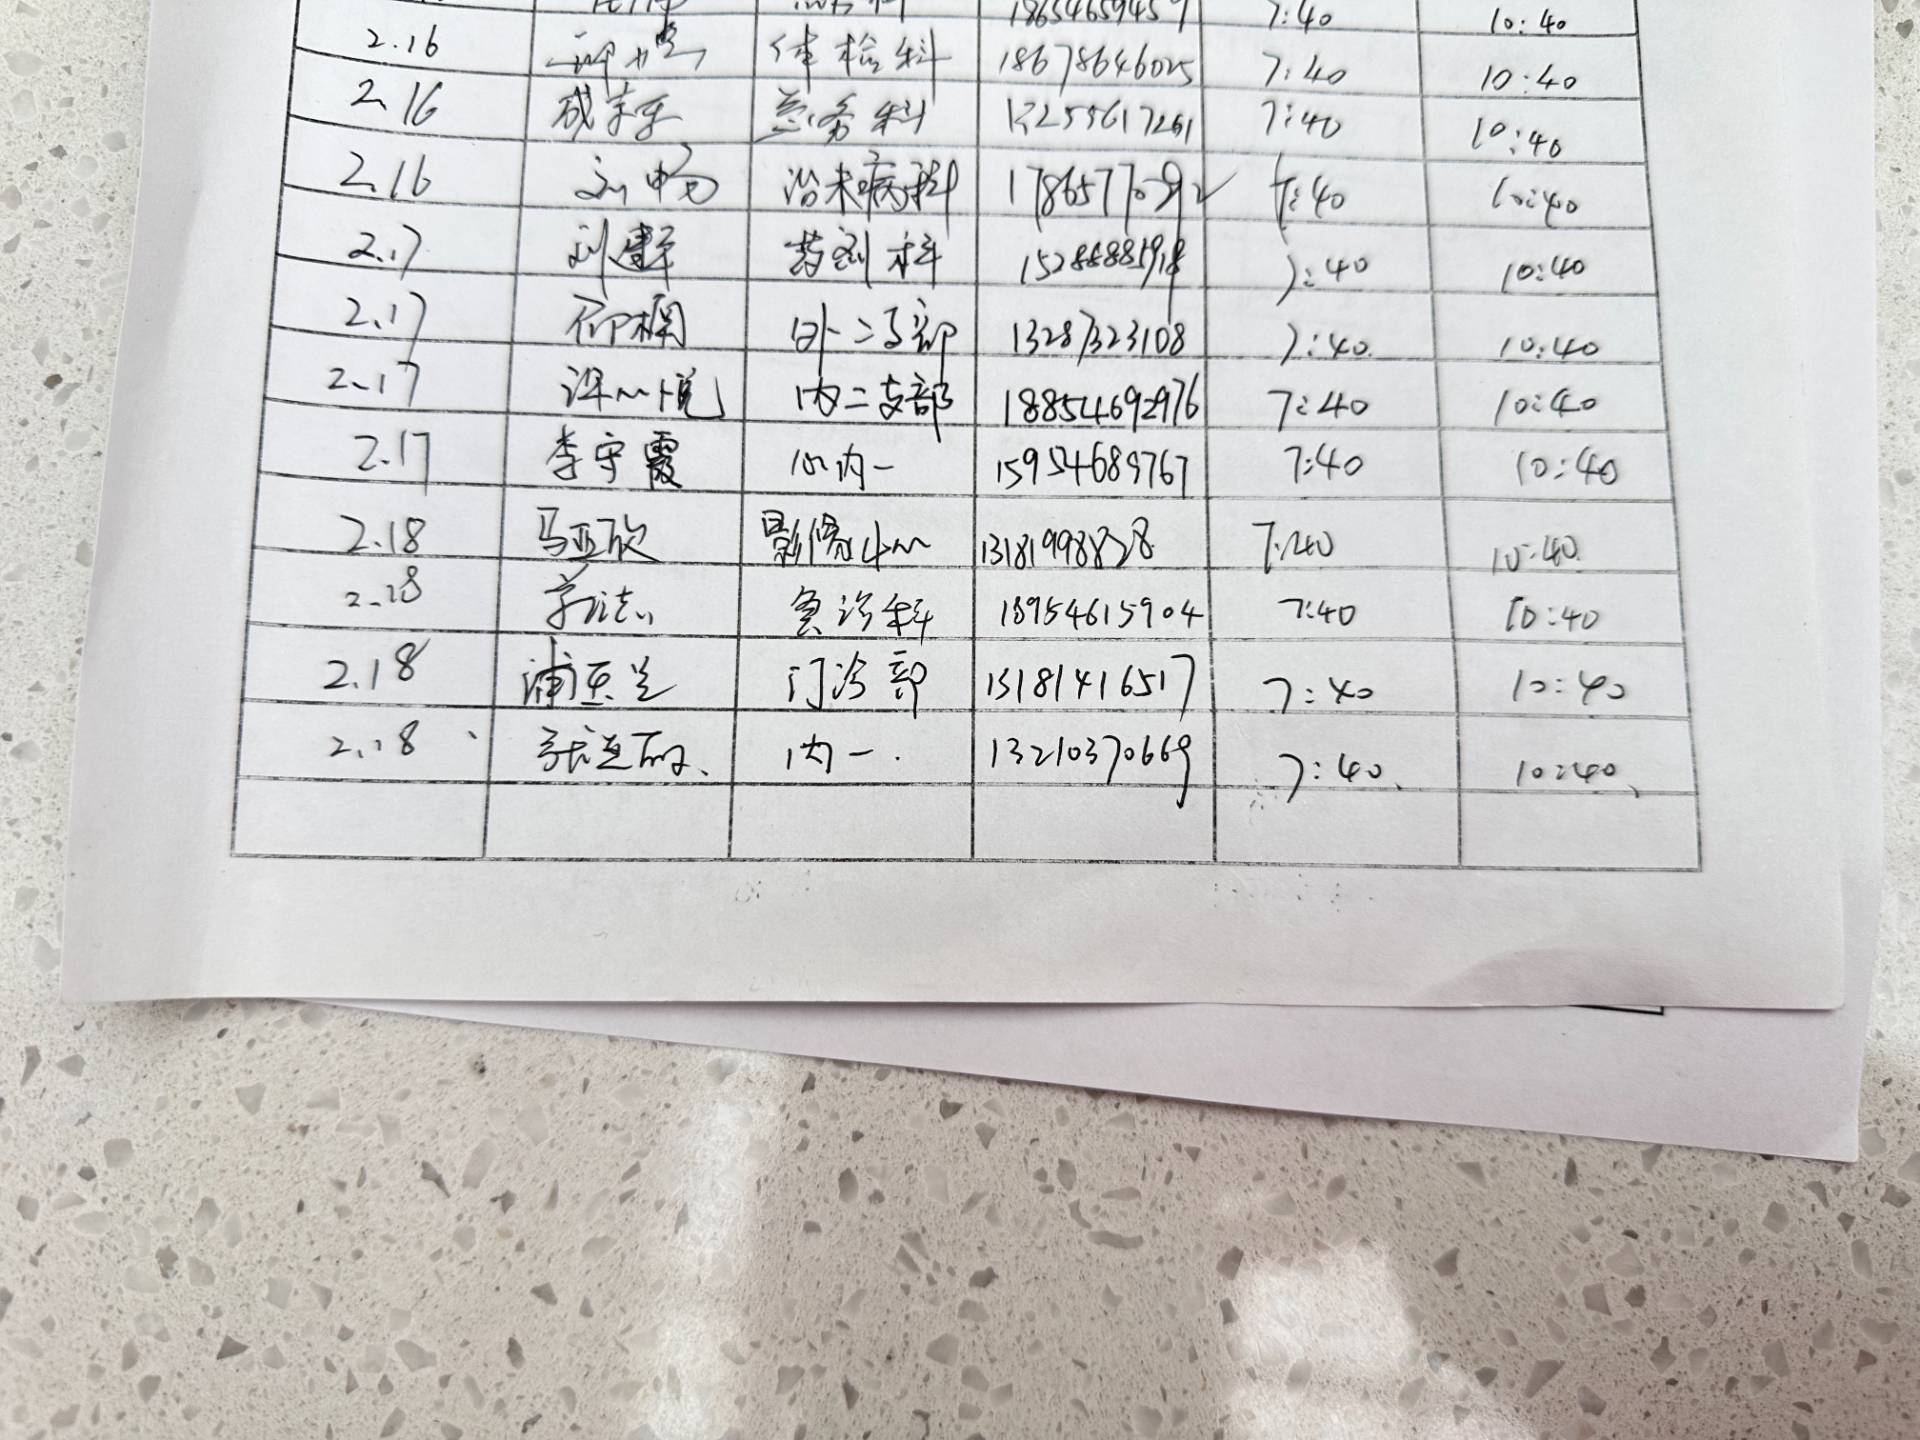 7:40 10:40
2.16 体检科 18678646025 7:40 10:40
2.16 科 13255617261 7:40 10:40
2.16 刘畅 治未病科 7:40 10:40
2.17 刘建军 药剂科 7:40 10:40
2.17 外二支部 13287323108 7:40 10:40
2.17 心悦 内二支部 18854692976 7:40 10:40
2.17 李宁霞 心内一 15954689767 7:40 10:40
2.18 马亚欣 影像中心 13181998828 7:40 10:40
2.18 急诊科 18954615904 7:40 10:40
2.18 门诊部 13181416517 7:40 10:40
2.18 内一 13210370669 7:40 10:40